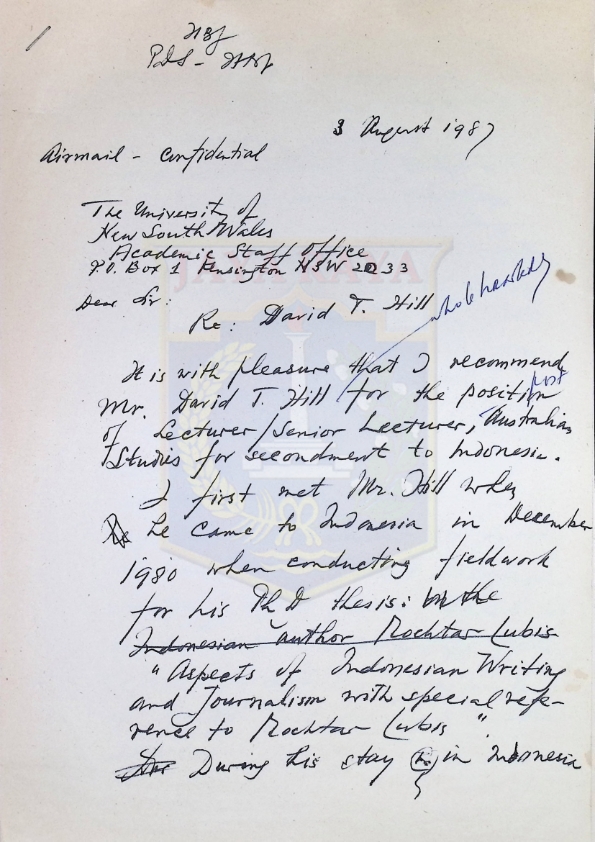 HBJ
PDS - HBJ
3 August 1987
Airmail - Confidential
The University of
New South Wales
Academic Staff Office
P.O. Box 1 Kensington NSW 2033
Dear Sir:
Re: David T. Hill
wholeheartedly
It is with pleasure that I recommend
Mr. David T. Hill for the position
post
of Lecturer/Senior Lecturer, Australian
Studies for secondment to Indonesia.
I first met Mr. Hill when
he came to Indonesia in December
1980 when conducting fieldwork
for his Ph D thesis: on the
Indonesian author Mochtar Lubis
"Aspects of Indonesian Writing
and Journalism with special refe-
rence to Mochtar Lubis".
During his stay in Indonesia
JAYA RAYA